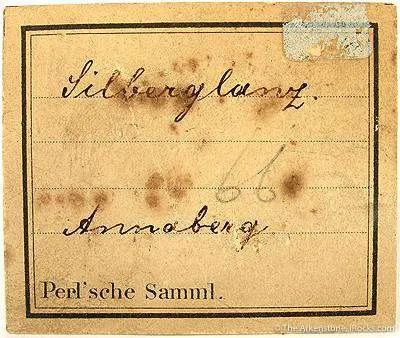 Silberglanz.
66
Annaberg
Perl'sche Samml.
© The Arkenstone, iRocks.com